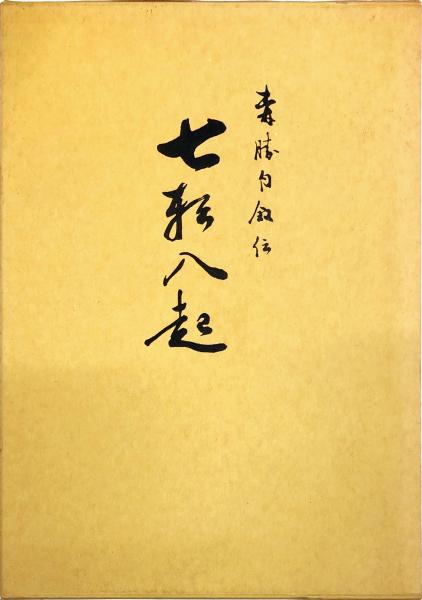 勝自叙伝
七転八起